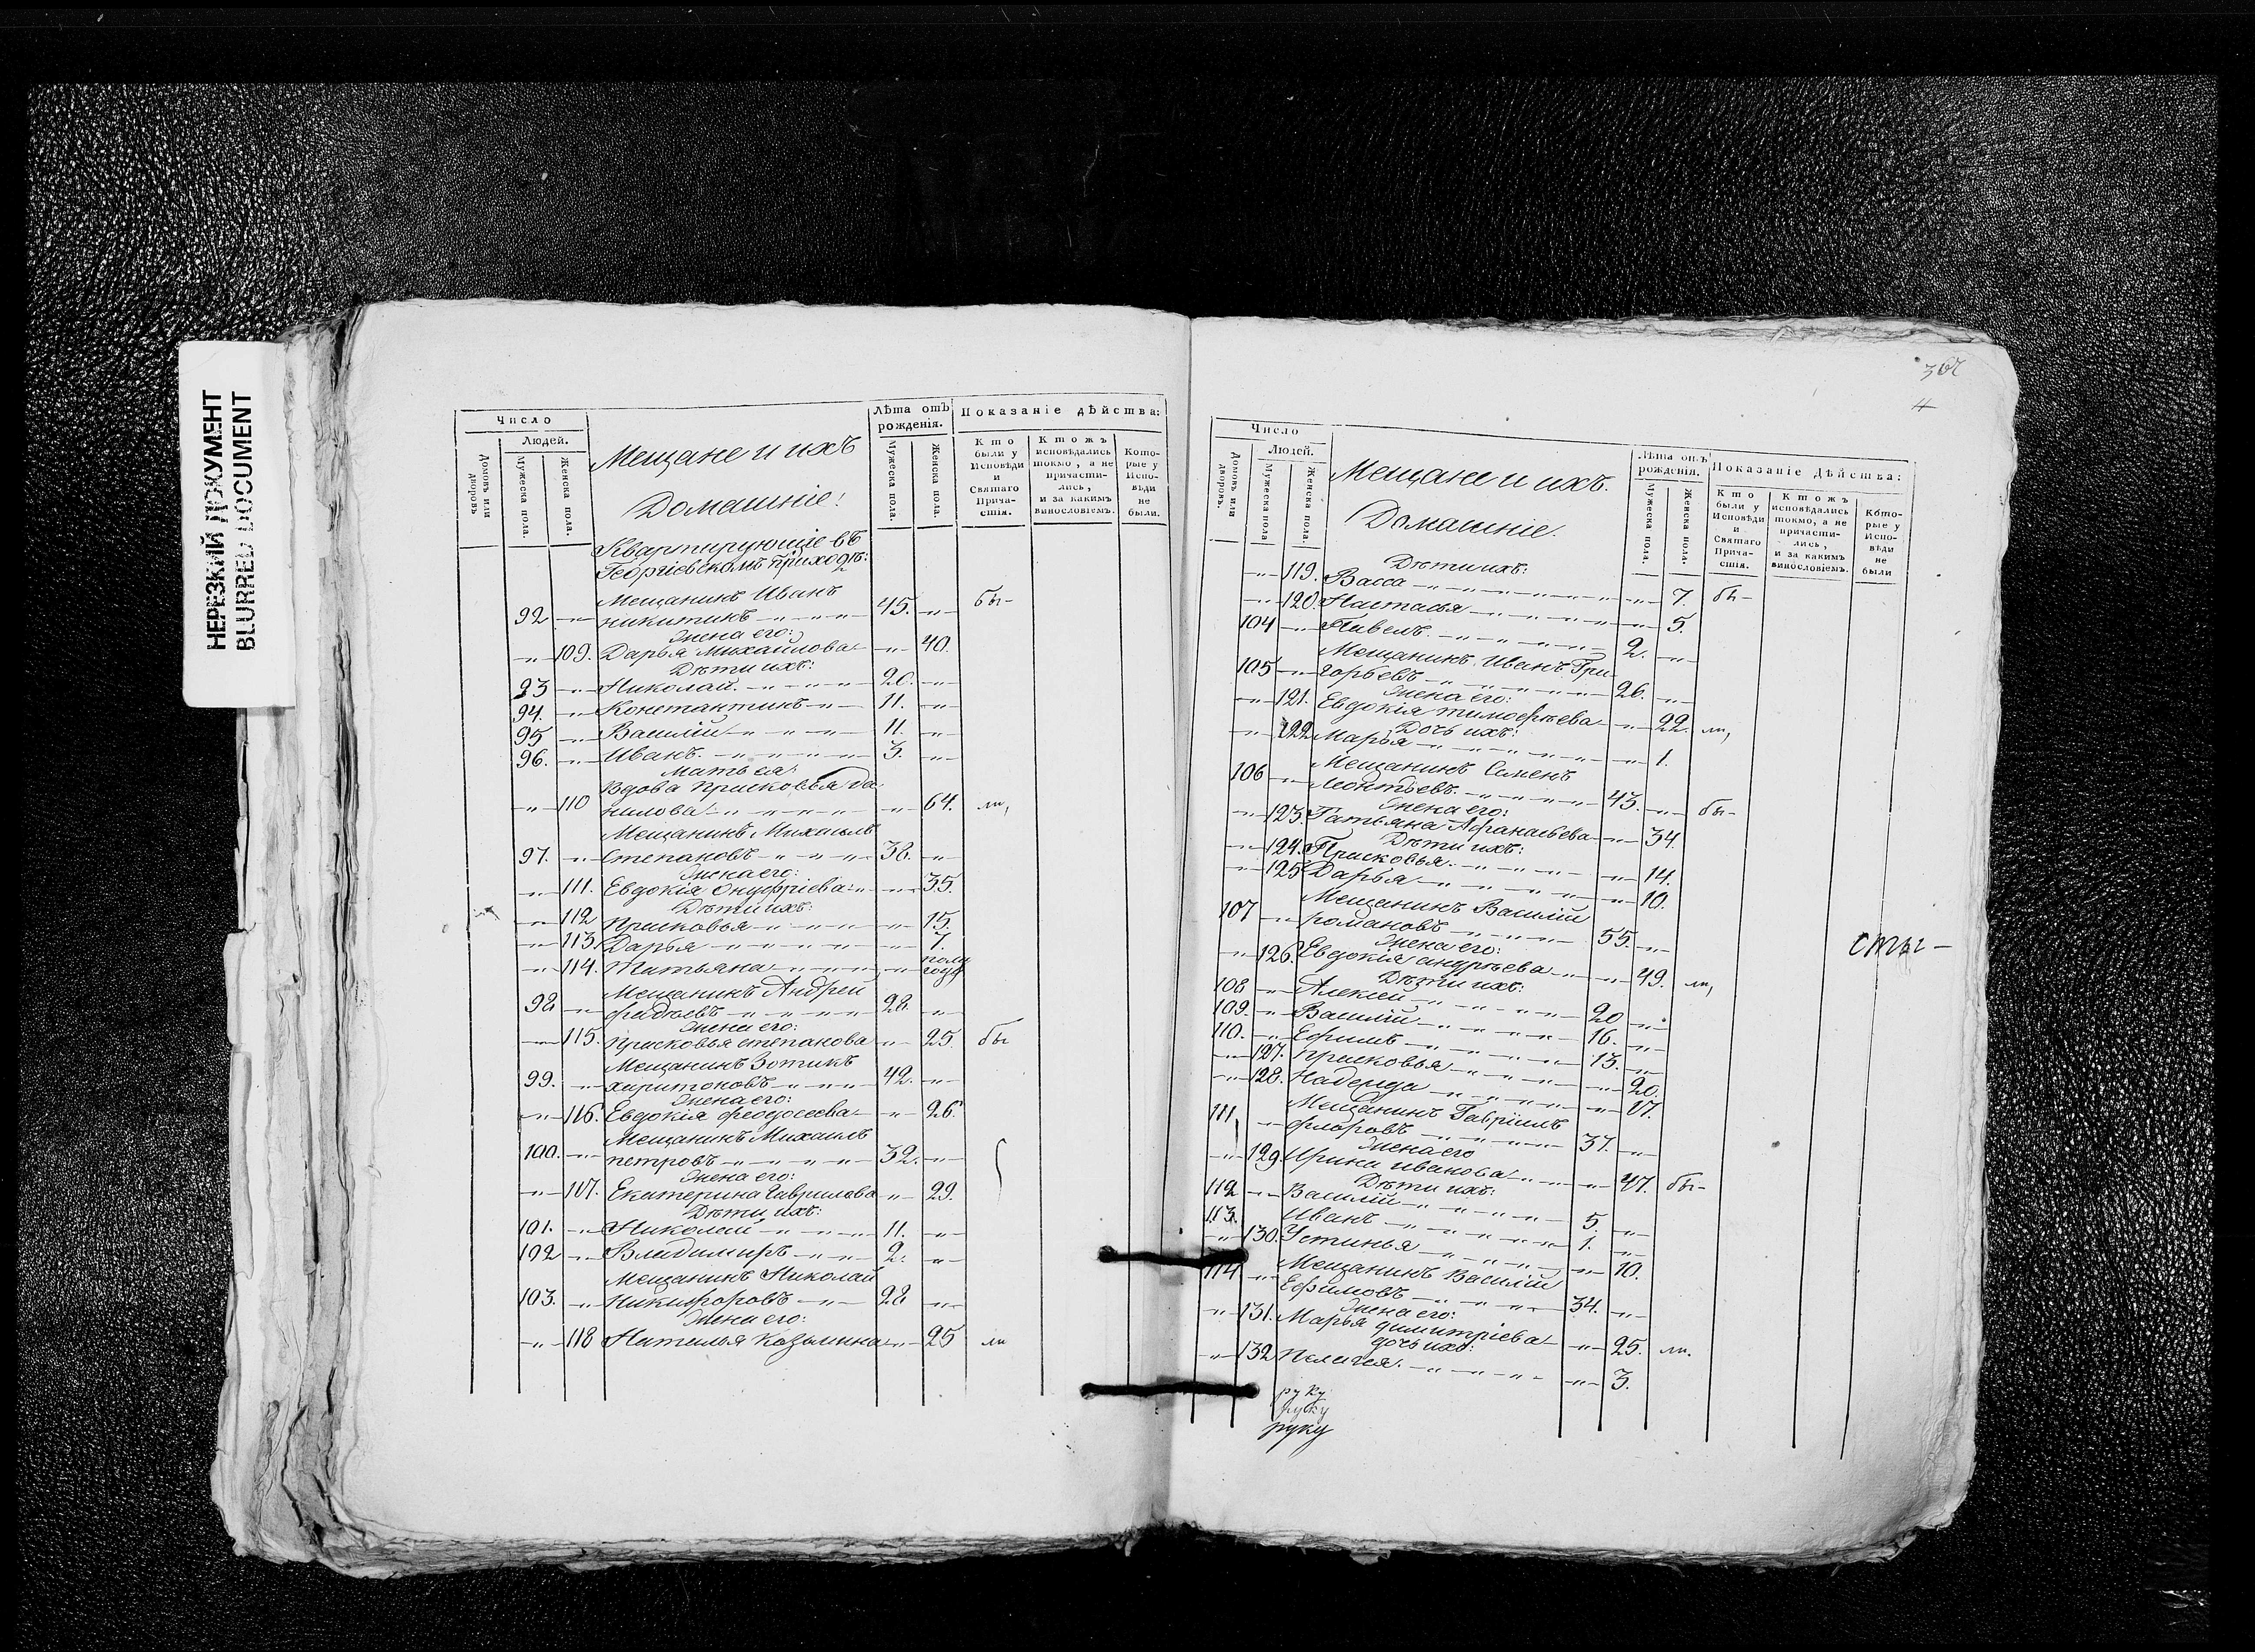 НЕРЕЗКИЙ ДОКУМЕНТ
BLURRED DOCUMENT
Число
Людей.
Домовъ или дворовъ
Мужеска пола.
Женска пола.
Мещане и ихъ
Домашніе:
Лѣта отъ рожденія.
Мужеска пола.
Женска пола.
Показаніе дѣйства:
Кто были у Исповѣди и Святаго Причастія.
Ктожъ исповѣдались токмо, а не причастились, и за какимъ винословіемъ.
Которые у Исповѣди не были.
Квартирующіе въ
Георгіевскомъ приходѣ:
Мещанинъ Иванъ
92 никитинъ 45. бы-
Жена его:
109. Дарья Михайлова 40.
Дѣти ихъ:
93 Николай. 20.
94. Константинъ 11.
95 Василій 11.
96. Иванъ. 3.
Мать ея:
Вдова Присковья Да-
110 нилова 64. ли,
Мещанинъ Михаилъ
97. Степановъ 38.
Жена его:
111. Евдокія Онуфріева 35.
Дѣти ихъ:
112 Присковья 15.
113. Дарья 7.
114. Татьяна полу года
Мещанинъ Андрей
98 фадѣевъ 28.
Жена его:
115. Присковья степанова 25 бы
Мещанинъ Зотикъ
99. харитоновъ 42.
Жена его:
116. Евдокія феодосеева 26.
Мещанинъ Михаилъ
100. петровъ 32.
Жена его:
107. Екатерина Гаврилова 29.
Дѣти ихъ:
101. Николай 11.
102 Владимиръ 2.
Мещанинъ Николай
103. Никифоровъ 28
Жена его:
118 Наталья Козьмина 25 ли
367
4
Число
Людей.
Домовъ или дворовъ.
Мужеска пола
Женска пола.
Мещане и ихъ.
Домашніе.
Лѣта отъ рожденія.
Мужеска пола.
Женска пола.
Показаніе Дѣйства:
Кто были у Исповѣди и Святаго Причастія.
Ктожъ исповѣдались токмо, а не причастились, и за какимъ винословіемъ.
Которые у Исповѣди не были
Дѣти ихъ:
119. Васса 7. бы-
120. Настасья 5.
104 Павелъ. 2.
Мещанинъ Иванъ Гри-
105 горьевъ 26.
Жена его:
121. Евдокія тимофѣева 22. ли,
Дочь ихъ:
122 Марья 1.
Мещанинъ Семенъ
106 Леонтьевъ. 43. бы-
Жена его:
123. Татьяна Афанасьева 34.
Дѣти ихъ:
124. Присковья. 14.
125 Дарья 10.
Мещанинъ Василій
107 романовъ 55.
Жена его:
126. Евдокія андрѣева 49. ли,
Дѣти ихъ:
108 Алексей 20
109. Василій 16.
110. Ефимъ 13.
127. Присковья 20.
128. Надежда 17.
Мещанинъ Гавріилъ
111. флоровъ 37.
Жена его
129. Ирина иванова 47. бы-
Дѣти ихъ:
112 Василій 5.
113. Иванъ 1.
130. Устинья 10.
Мещанинъ Василій
114 Ефимовъ 34.
Жена его:
131. Марья димитріева 25. ли.
дочь ихъ:
132 Пелагея. 3.
сты-
руку
руку
руку